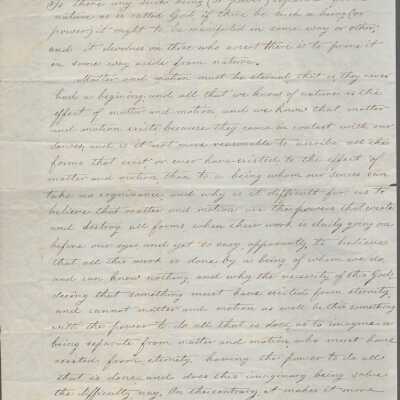 Is there any such being (or power) separate from
nature as is called God if there be such a being (or
power) it ought to be manifested in some way or other,
and it devolves on those who assert there is to prove it
in some way aside from nature.
Matter and motion must be eternal, that is they never
had a begining and all that we know of nature is the
effect of matter and motion and we know that matter
and motion exists because they come in contact with our
senses, and is it not more reasonable to ascribe all the
forms that exist or ever have existed to the effect of
matter and motion than to a being whom our senses can
take no cognizance, and why is it difficult for us to
believe that matter and motion are the powers that create
and destroy all forms when their work is daily going on
before our eyes and yet so easy apparently to believe
that all this work is done by a being of whom we do
and can know nothing, and why the necessity of this God,
seeing that something must have existed from eternity
and cannot matter and motion as well be this something
with the power to do all that is done as to imagine a
being separate from matter and motion, who must have
existed from eternity, having the power to do all
that is done, and does this imaginary being solve
the difficulty, nay, On the contrary it makes it more